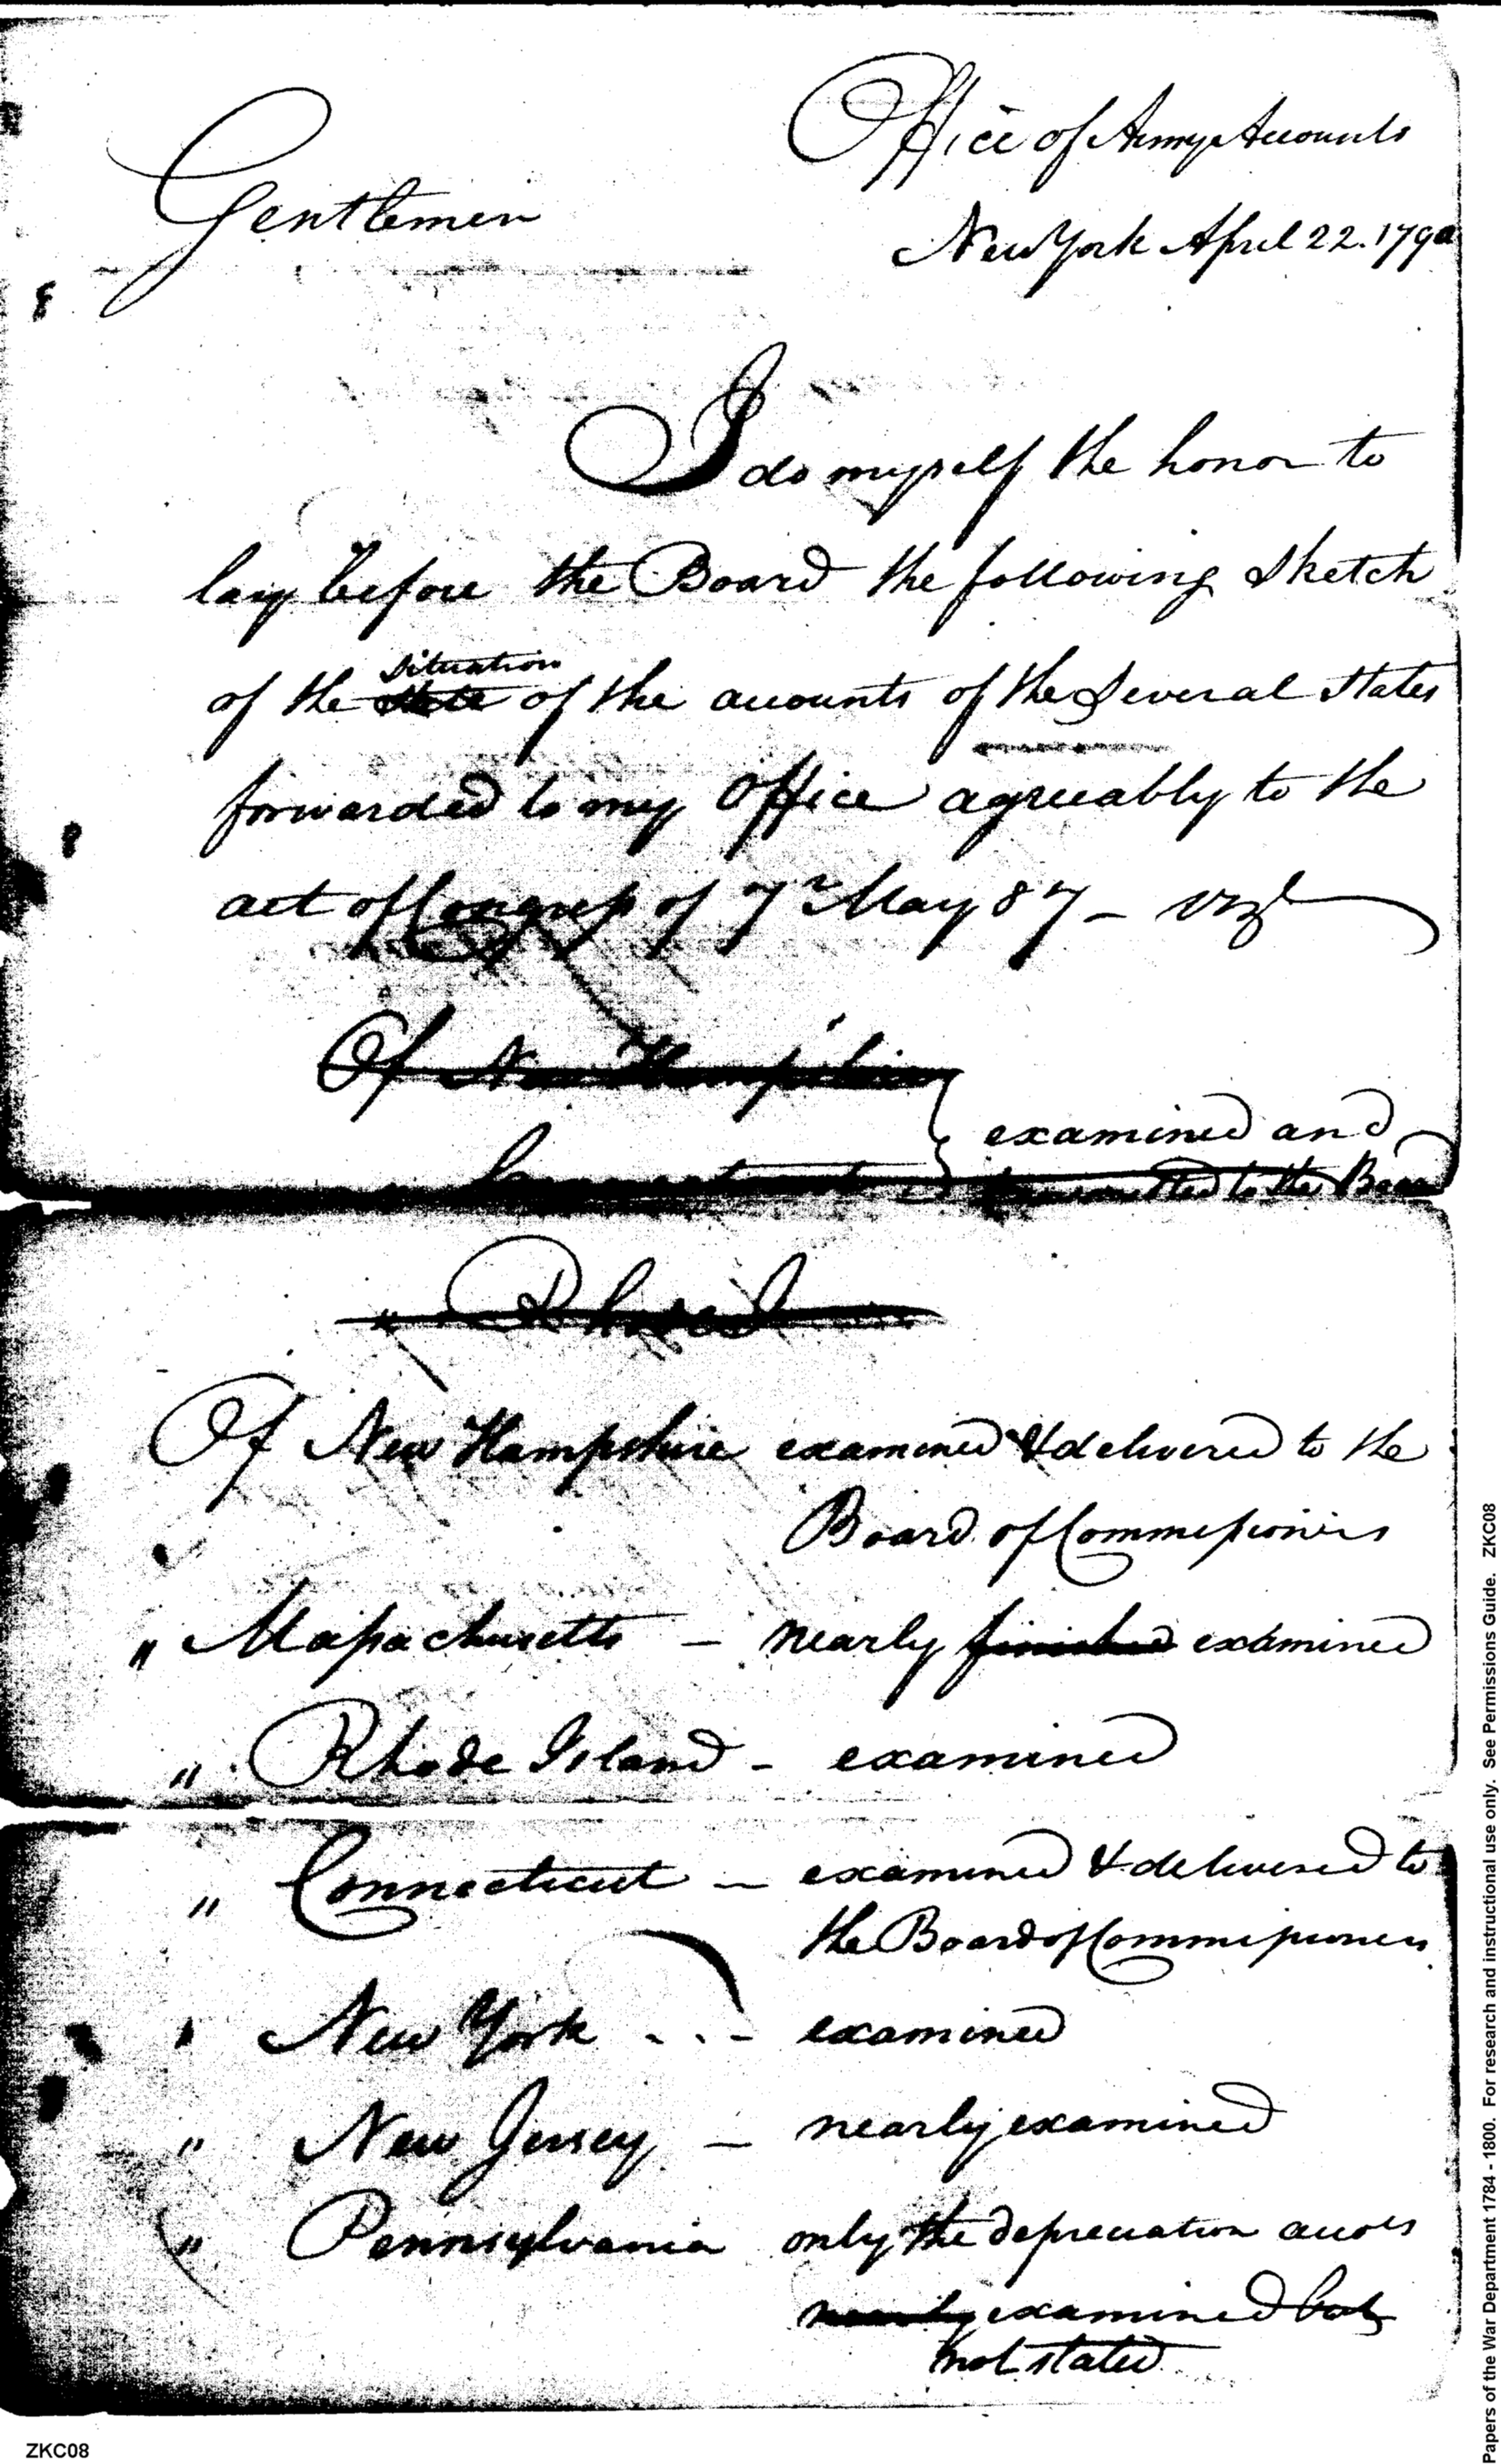 Office of Army Accounts
Gentlemen
New York April 22. 1790
I do myself the honor to
lay before the Board the following Sketch
situation
of the state of the accounts of the Several States
forwarded to my Office agreeably to the
act of Congress of 7th May 87 – vizt
Of New Hampshire
Connecticut } examined and
transmitted to the Board
" Rhode
Of New Hampshire examined & delivered to the
Board of Commissioners
" Massachusetts – nearly finished examined
" Rhode Island - examined
" Connecticut – examined & delivered to
the Board of Commissioners
" New York - - - examined
" New Jersey – nearly examined
" Pennsylvania only the depreciation accots
nearly examined but
not stated
ZKC08
Papers of the War Department 1784 - 1800. For research and instructional use only. See Permissions Guide. ZKC08